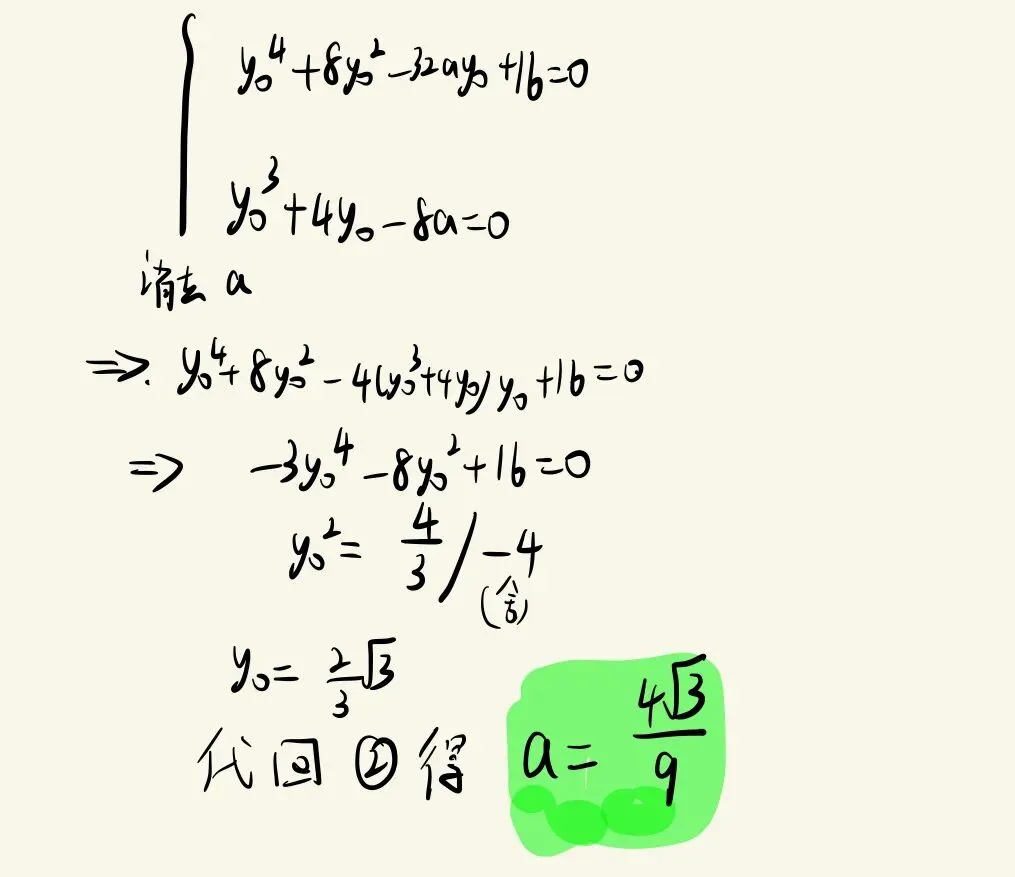 y₀⁴+8y₀²-32ay₀+16=0
y₀³+4y₀-8a=0
消去 a
⇒. y₀⁴+8y₀²-4(y₀³+4y₀)y₀+16=0
⇒ -3y₀⁴-8y₀²+16=0
y₀²= 4/3 / -4
(舍)
y₀= 2/3√3
代回②得 a= 4√3/9